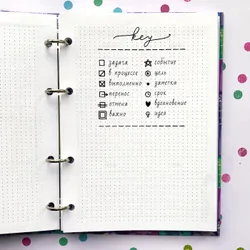 key
задача событие
в процессе цель
выполненно заметка
перенос срок
отмена вдохновение
важно идея